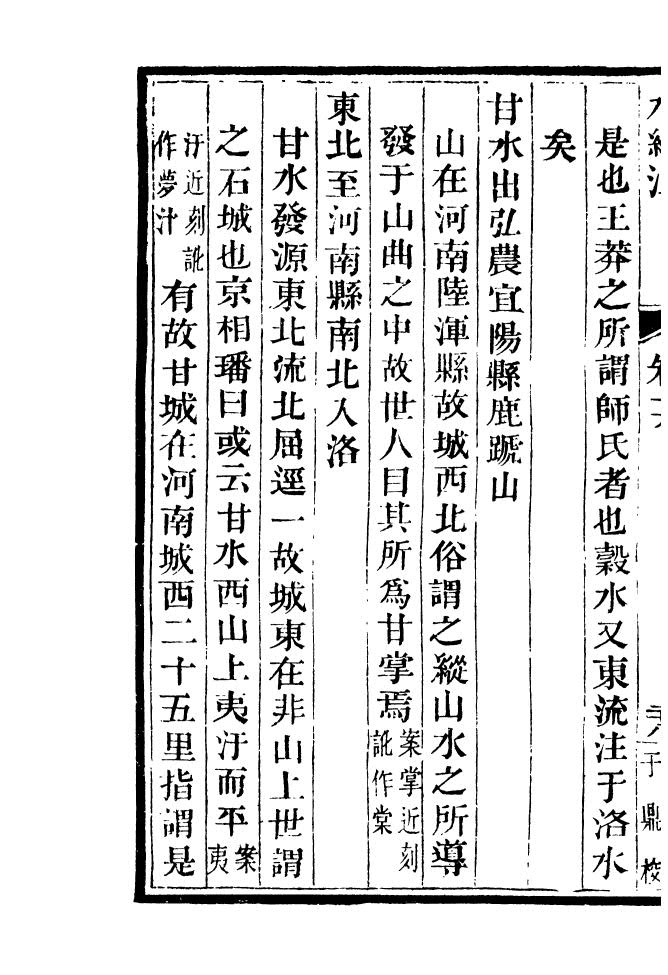 于鼎校
是也王莽之所謂師氏者也穀水又東流注于洛水
矣
甘水出弘農宜陽縣鹿蹏山
山在河南陸渾縣故城西北俗謂之縱山水之所導
發于山曲之中故世人目其所爲甘掌焉案掌近刻訛作棠
東北至河南縣南北入洛
甘水發源東北流北屈逕一故城東在非山上世謂
之石城也京相璠曰或云甘水西山上夷汙而平案夷
汙近刻訛作夢汁有故甘城在河南城西二十五里指謂是